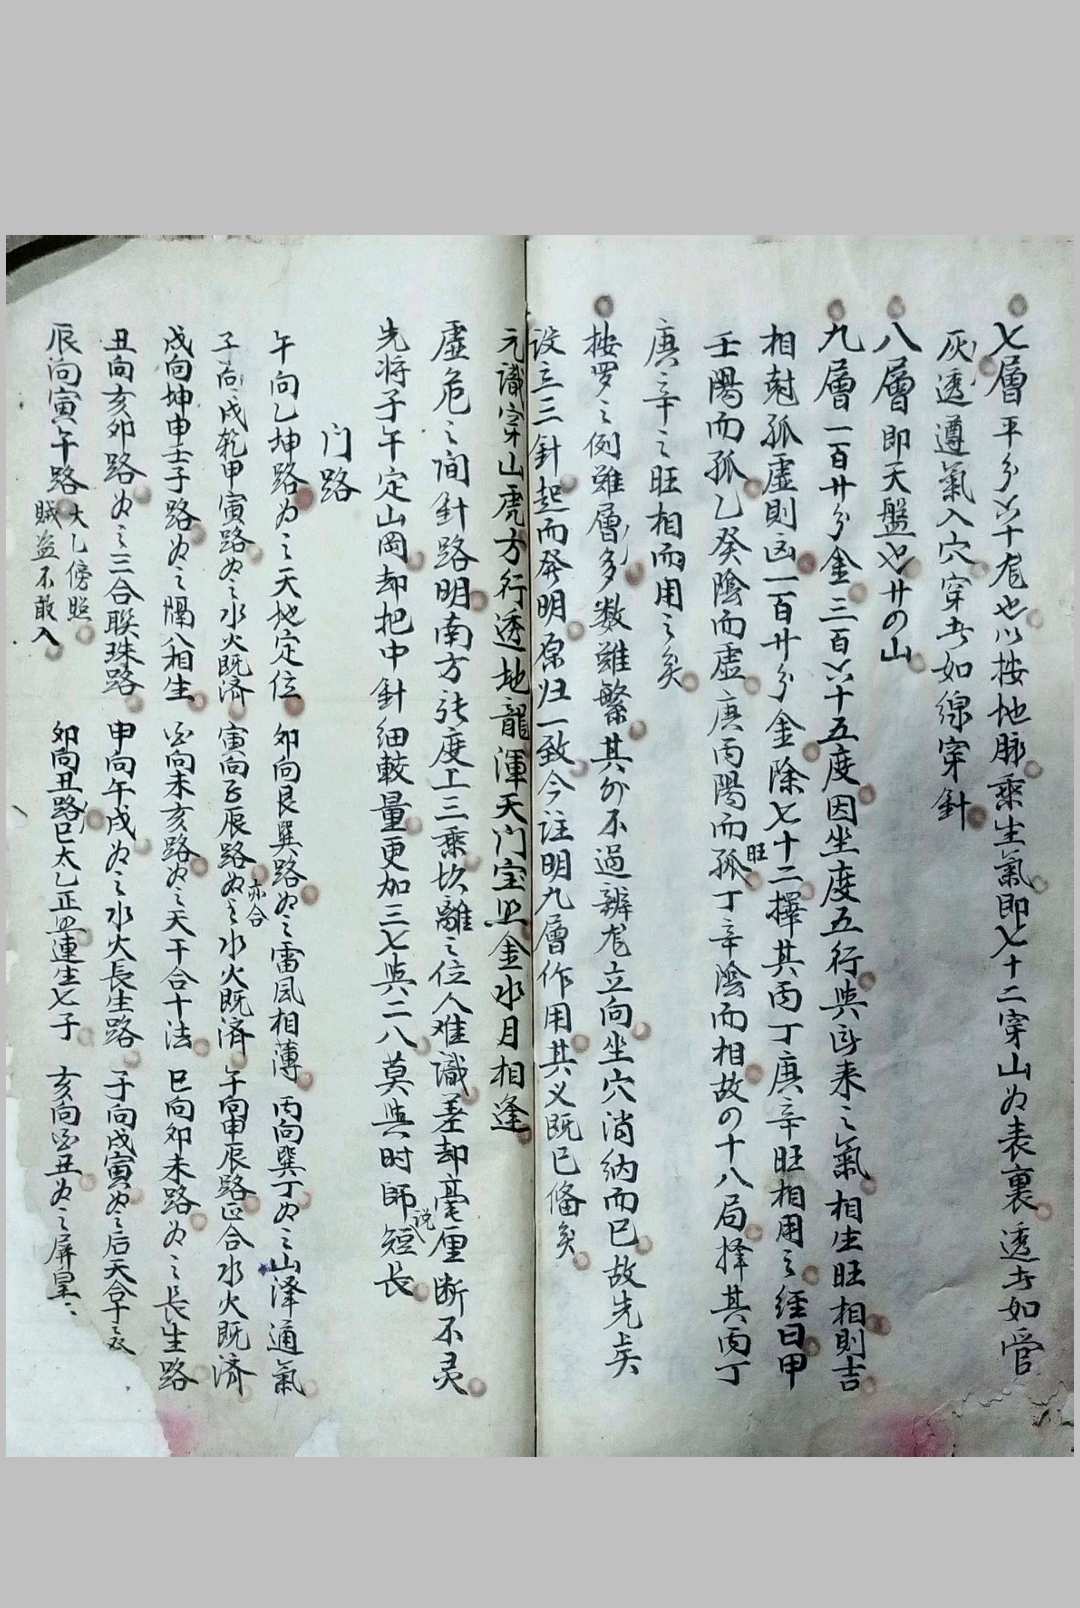 七層平分六十龙也以按地脉乘生氣即七十二穿山为表裏透者如管
灰透遵氣入穴穿者如線穿針
八層即天盤也廿四山
九層一百廿分金三百六十五度因坐度五行與身来之氣相生旺相則吉
相尅孤虛則凶一百廿分金除七十二擇其丙丁庚辛旺相用之經曰甲
壬陽而孤乙癸陰而虛庚丙陽而旺丁辛陰而相故四十八局擇其丙丁
庚辛之旺相而用之矣
按罗之例雖層多数雖繁其外不過辨龙立向坐穴消納而已故先矣
设立三針起而發明原归一致今註明九層作用其义既已俻矣
元識穿山虎方行透地龍渾天门宝照金水月相逢
虛危之间針路明南方张度上三乘坎離之位人难識差却毫厘断不灵
先将子午定山岡却把中針细較量更加三七與二八莫與时師说短長
门路
午向乙坤路为之天地定位 卯向艮巽路为之雷風相薄 丙向巽丁为之山泽通氣
子向戌乾甲寅路为之水火既济 寅向子辰路为之水火既済亦合 午向申辰路正合水火既济
戌向坤申壬子路为之隔八相生 酉向未亥路为之天干合十法 巳向卯未路为之長生路
丑向亥卯路为之三合聯珠路 申向午戌为之水火長生路 子向戌寅为之后天合
辰向寅午路太乙傍照賊盗不敢入 卯向丑路巳太乙正照連生七子 亥向酉丑为之屏皇